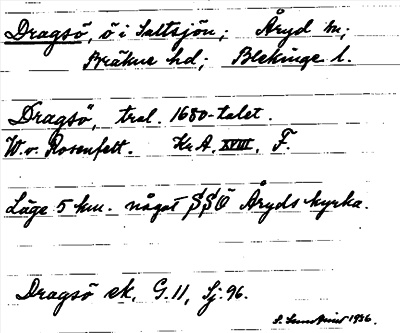 Dragsö, ö i Saltsjön; Åryd sn;
Bräkne hd; Blekinge l.
Dragsö, tral. 1680-talet.
W. v. Rosenfelt. Kr A. XVIII. F.
Läge 5 km. något SSÖ Åryds kyrka.
Dragsö ek. G. 11, Sj. 96.
1936.